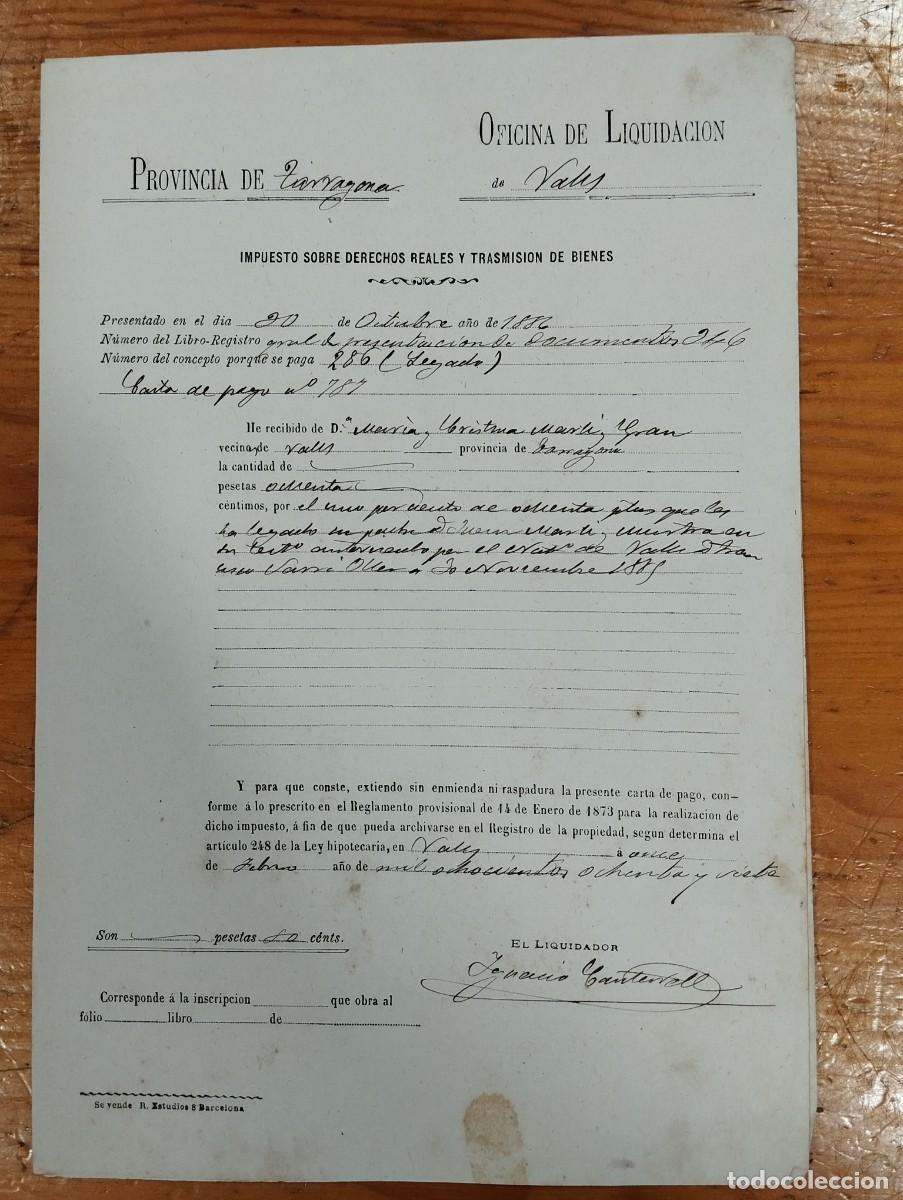 OFICINA DE LIQUIDACION
PROVINCIA DE Tarragona
de Valls
IMPUESTO SOBRE DERECHOS REALES Y TRASMISION DE BIENES
Presentado en el dia 20 de Octubre año de 1886
Número del Libro-Registro gral de presentacion de documentos 246
Número del concepto porque se paga 286 (Legado)
Carta de pago nº 787
He recibido de D.ª Maria y Cristina Marti y Gran
vecina de Valls provincia de Tarragona
la cantidad de
pesetas ochenta
céntimos, por el uno por ciento de ochenta ptas que les
ha legado su padre D. Juan Marti y en
su testº por el Notº de Valls D. Fran
cisco Oller a 30 Noviembre 1885
Y para que conste, extiendo sin enmienda ni raspadura la presente carta de pago, con-
forme á lo prescrito en el Reglamento provisional de 14 de Enero de 1873 para la realizacion de
dicho impuesto, á fin de que pueda archivarse en el Registro de la propiedad, segun determina el
artículo 248 de la Ley hipotecaria, en Valls á once
de Febrero año de mil ochocientos ochenta y siete
Son pesetas 80 cénts.
EL LIQUIDADOR
Ignacio
Corresponde á la inscripcion que obra al
fólio libro de
Se vende R. Estudios 8 Barcelona
todocoleccion